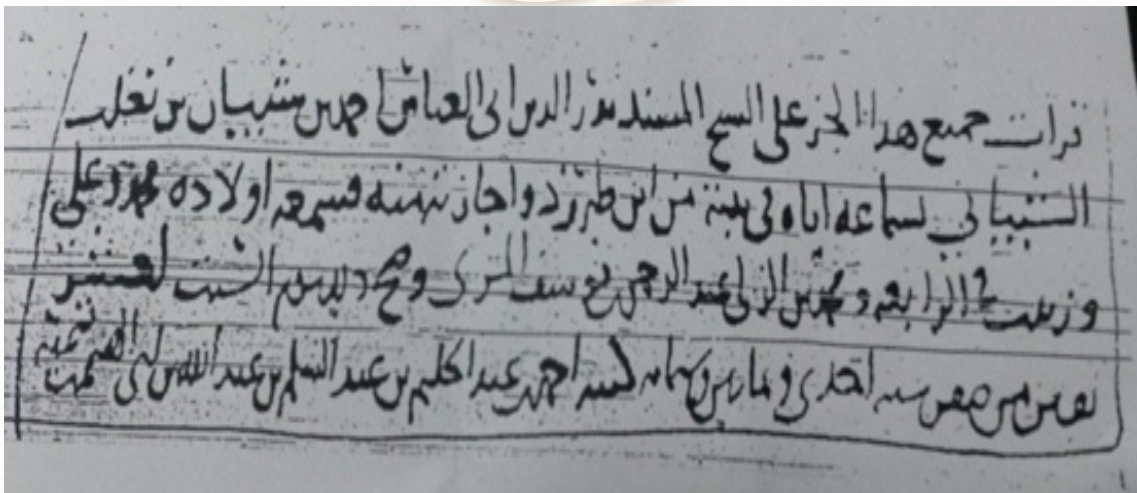 قرات جميع هذا الجز على الشيخ المسند بدر الدين ابى العباس احمد بن شيبان بن تغلب
الشيبانى بسماعه اياه فى بيته من ابن طبرزد واجازته منه فسمعه اولاده محمد وعلى
وزينب فى الرابعة و محمد بن الزكى عبد الرحمن بن يوسف المزى وصح ذلك يوم السبت لعشر
بقين من صفر سنة احدى وثمانين وستمائة كتبه احمد بن عبد الحليم بن عبد السلم بن عبد الله بن ابى القسم بن تيمية